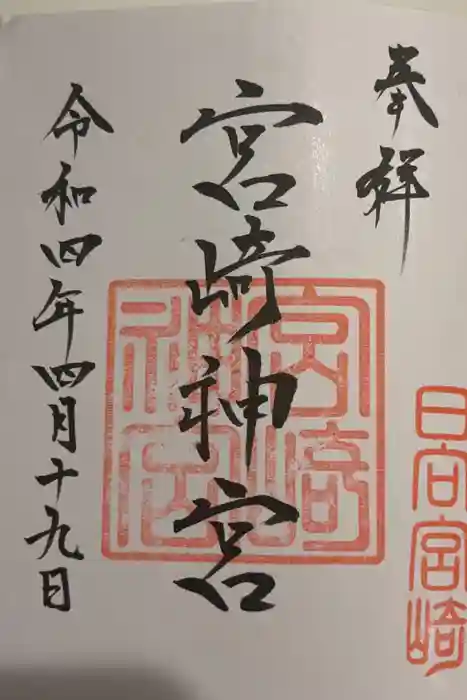 奉拝
日向宮崎
宮崎神宮
宮崎神宮
令和四年四月十九日